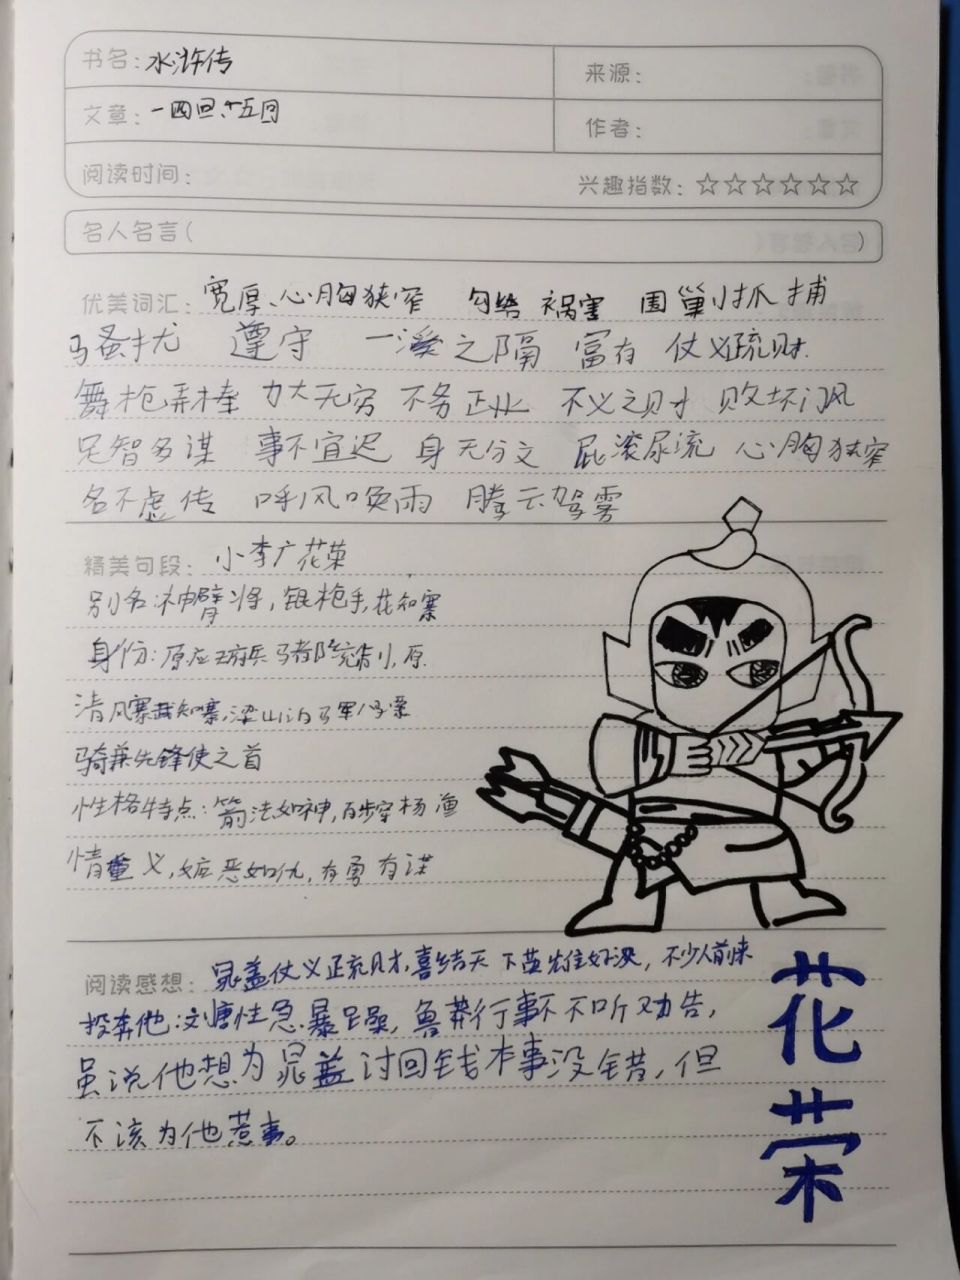 书名:水浒传
来源:
文章:一四回、十五回
作者:
阅读时间:
兴趣指数:☆☆☆☆☆☆
名人名言( )
优美词汇:宽厚、心胸狭窄 勾结 祸害 围巢 小抓 捕
骚扰 遵守 一溪之隔 富有 仗义疏财.
舞枪弄棒 力大无穷 不务正业 不义之财 败坏门风
足智多谋 事不宜迟 身无分文 屁滚尿流 心胸狭窄
名不虚传 呼风唤雨 腾云驾雾
精美句段:小李广花荣
别名:神臂将,银枪手,花知寨
身份:原应王府兵马都统制,原
清风寨武知寨,梁山泊马军八骠
骑兼先锋使之首
性格特点:箭法如神,百步穿杨
情重义,嫉恶如仇,有勇有谋
阅读感想:晁盖仗义疏财,喜结天下英雄好汉,不少人前来
投奔他;刘唐性急暴躁,鲁莽行事不听劝告,
虽说他想为晁盖讨回钱本事没错,但
不该为他惹事。
花荣